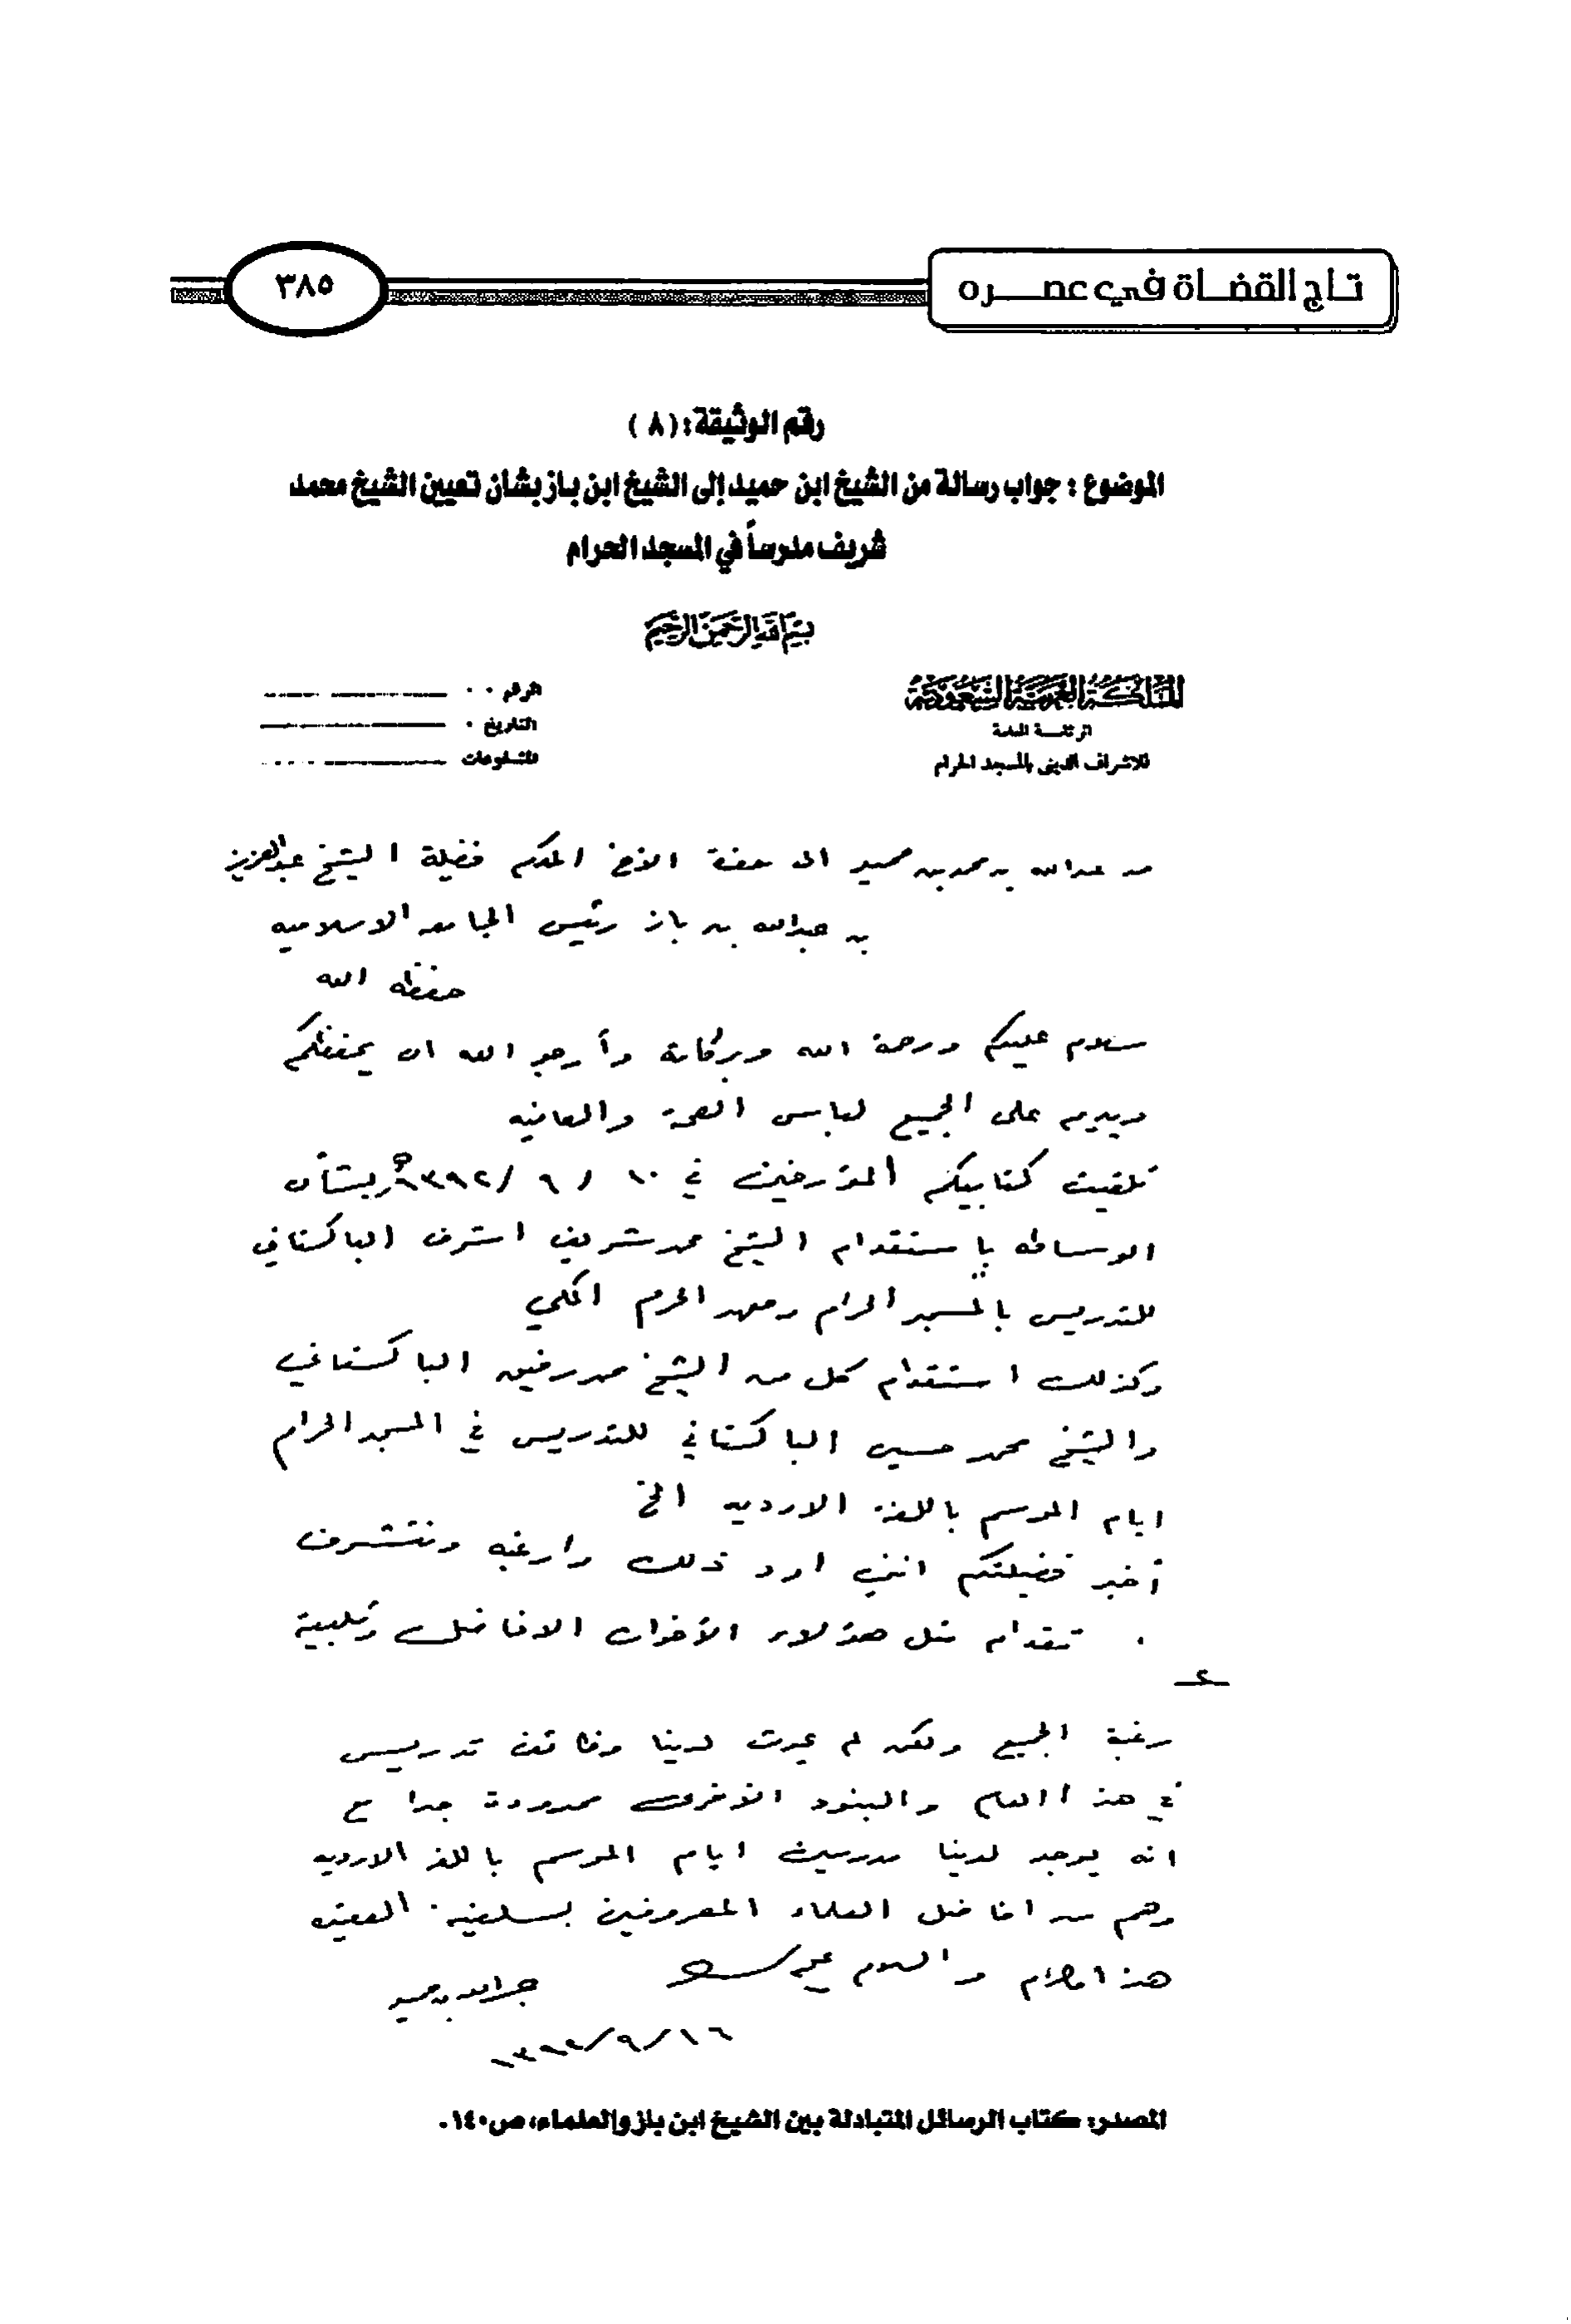 تاج القضاة في عصره
٣٨٥
رقم الوثيقة: (٨)
الموضوع: جواب رسالة من الشيخ ابن حميد إلى الشيخ ابن باز بشأن تعيين الشيخ محمد
شريف مدرساً في المسجد الحرام
بسم الله الرحمن الرحيم
المملكة العربية السعودية
الرئاسة العامة
للاشراف الديني بالمسجد الحرام
الرقم
التاريخ
المشفوعات
من عبدالله بن محمد بن حميد الى حضرة الأخ المكرم فضيلة الشيخ عبدالعزيز
بن عبدالله بن باز رئيس الجامعه الاسلاميه
حفظه الله
سلام عليكم ورحمة الله وبركاته وأرجو الله ان يحفظكم
ويديم على الجميع لباس الصحة والعافيه
تلقيت كتابيكم المؤرخين في ١٠ / ٩ / ١٣٩٢هـ بشأن
الوساطه باستقدام الشيخ محمد شريف اشرف الباكستاني
للتدريس بالمسجد الحرام ومعهد الحرم المكي
وكذلك استقدام كل من الشيخ محمد رفيق الباكستاني
والشيخ محمد حسين الباكستاني للتدريس في المسجد الحرام
ايام الموسم باللغة الارديه الخ
أخبر فضيلتكم انني اود ذلك وارغبه ونتشرف
تقدام مثل هؤلاء الأخوان الافاضل وتلبية
ـ٢ـ
رغبة الجميع ولكن لم يحدث لدينا وظائف تدريس
في هذا العام والبنود الأخرى محدودة جدا مع
انه يوجد لدينا مدرسين ايام الموسم باللغة الارديه
وهم من افاضل العلماء المعروفين بسلفية العقيده
هذا مالزم والسلام عليكم عبدالله بن حميد
١٣٩٢/٩/١٦
المصدر: كتاب الرسائل المتبادلة بين الشيخ ابن باز والعلماء، ص١٤٠.